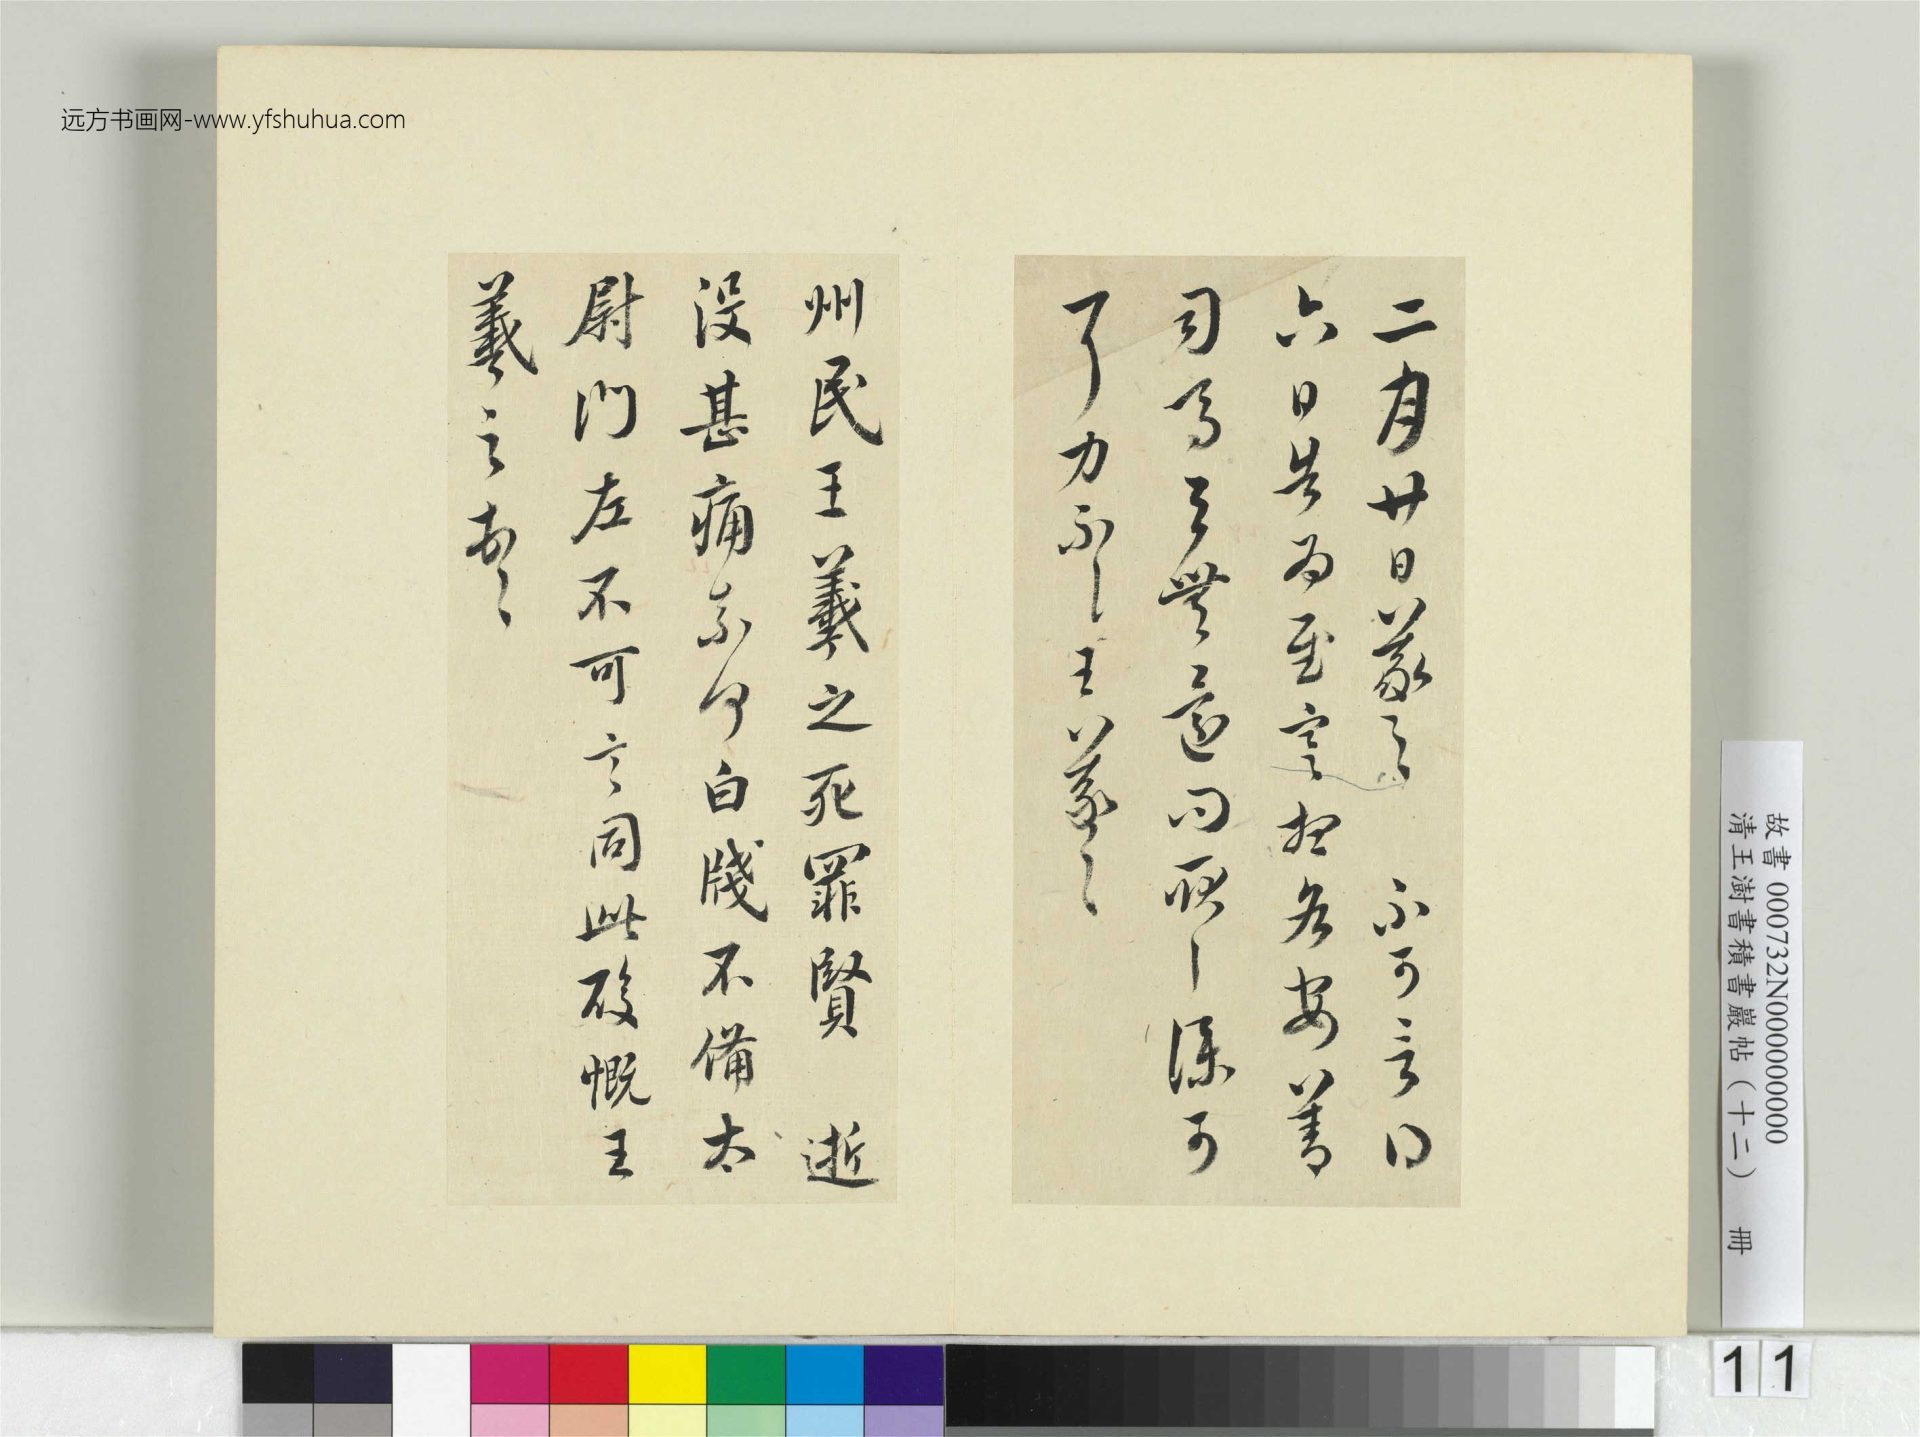 远方书画网-www.yfshuhua.com
二月廿日羲之 不可言得
六日告為慰寒想各安善
司馬以還問
力不一一王羲之
州民王羲之死罪賢 逝
没甚痛奈何白牋不備太
尉門左不可言同此酸慨王
羲之頓首
故書 000732N000000000
清王澍書積書巖帖(十二) 冊
11